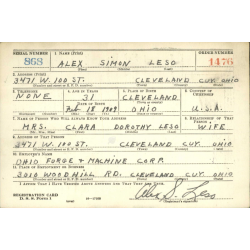 SERIAL NUMBER 1. NAME (Print) ORDER NUMBER
868 ALEX SIMON LESO 1476
(First) (Middle) (Last)
2. ADDRESS (Print)
3471 W. 100 ST. CLEVELAND CUY. OHIO
3. TELEPHONE 4. AGE IN YEARS 5. PLACE OF BIRTH 6. COUNTRY OF CITIZENSHIP
NONE 31 CLEVELAND
DATE OF BIRTH
Feb 18 1909 OHIO U.S.A.
7. NAME OF PERSON WHO WILL ALWAYS KNOW YOUR ADDRESS 8. RELATIONSHIP OF THAT PERSON
MRS. CLARA DOROTHY LESO WIFE
9. ADDRESS OF THAT PERSON
3471 W. 100 ST. CLEVELAND CUY. OHIO
10. EMPLOYER'S NAME
OHIO FORGE & MACHINE CORP.
11. PLACE OF EMPLOYMENT OR BUSINESS
3010 WOODHILL RD. CLEVELAND CUY. OHIO
I AFFIRM THAT I HAVE VERIFIED ABOVE ANSWERS AND THAT THEY ARE TRUE.
REGISTRATION CARD
D. S. S. FORM 1 Alex S. Leso